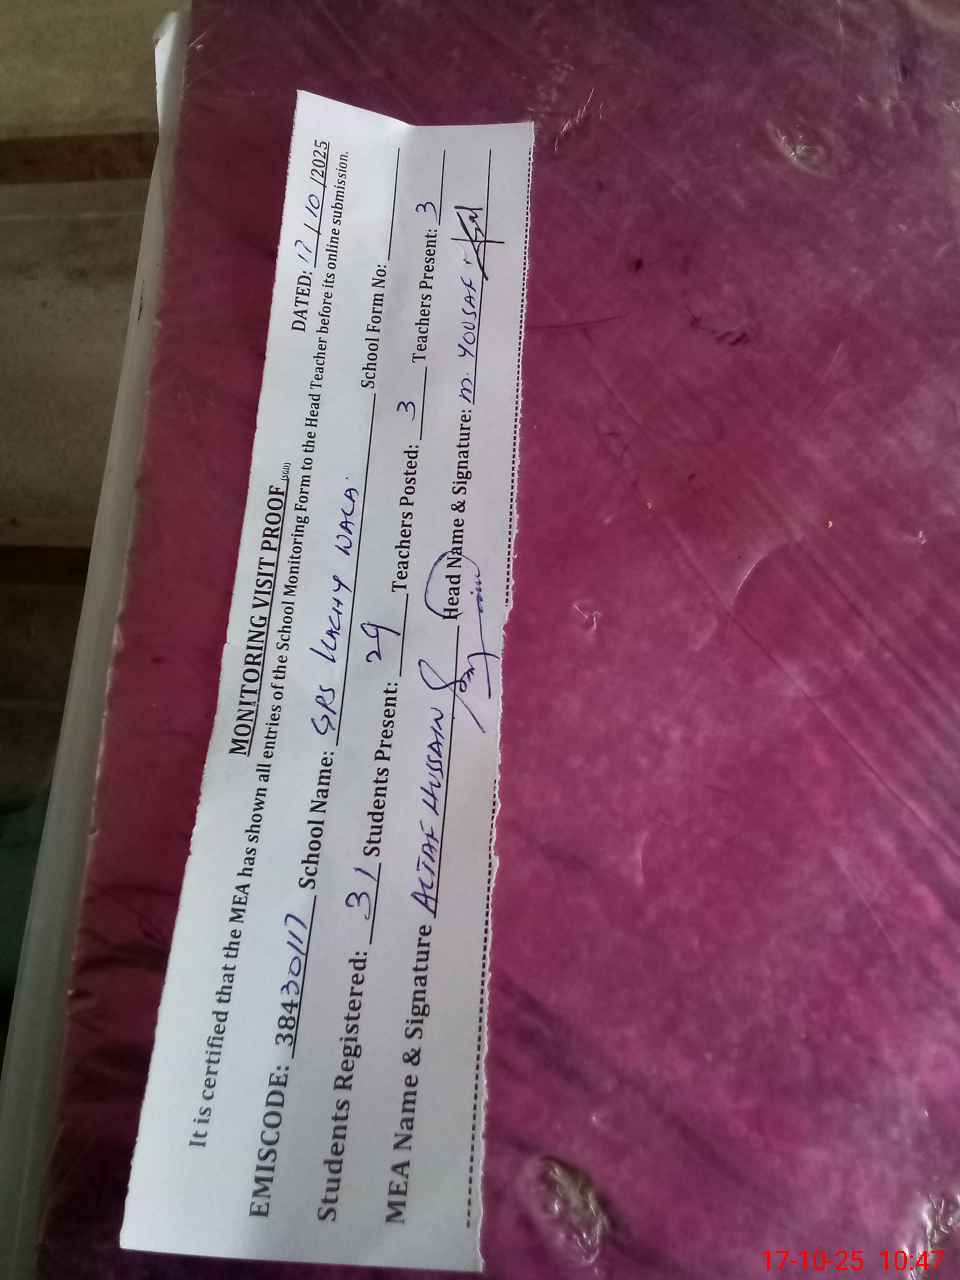 MONITORING VISIT PROOF
DATED: 17/10/2025
It is certified that the MEA has shown all entries of the School Monitoring Form to the Head Teacher before its online submission.
EMISCODE: 38430117 School Name: GPS KACHY WALA School Form No:
Students Registered: 31 Students Present: 29 Teachers Posted: 3 Teachers Present: 3
MEA Name & Signature ALTAF HUSSAIN Head Name & Signature: M. YOUSAF
17-10-25 10:47